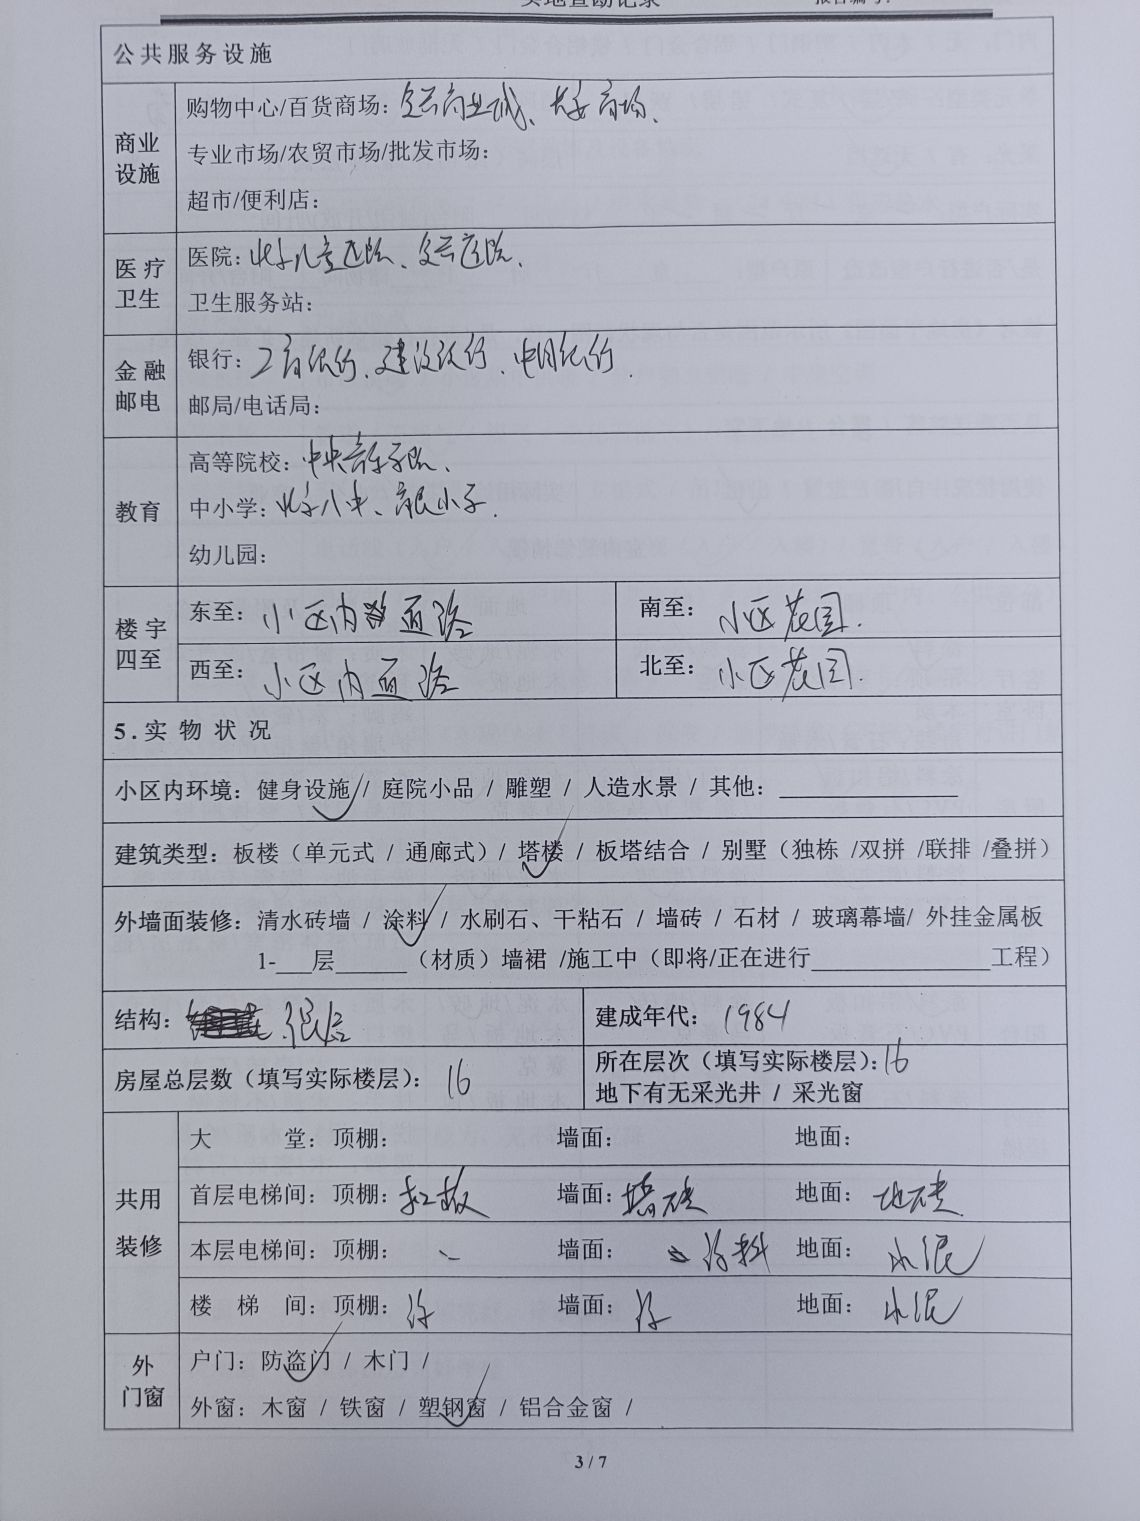 实地查勘记录
公共服务设施
商业设施
购物中心/百货商场：复兴商业城、长安商场、
专业市场/农贸市场/批发市场：
超市/便利店：
医疗卫生
医院：北京儿童医院、复兴医院、
卫生服务站：
金融邮电
银行：工商银行、建设银行、中国银行
邮局/电话局：
教育
高等院校：中央音乐学院、
中小学：北京八中、育民小学.
幼儿园：
楼宇四至
东至：小区内道路 南至：小区花园.
西至：小区内道路 北至：小区花园.
5.实物状况
小区内环境：健身设施 / 庭院小品 / 雕塑 / 人造水景 / 其他：
建筑类型：板楼（单元式 / 通廊式）/ 塔楼 / 板塔结合 / 别墅（独栋 /双拼 /联排 /叠拼）
外墙面装修：清水砖墙 / 涂料 / 水刷石、干粘石 / 墙砖 / 石材 / 玻璃幕墙/ 外挂金属板
1-___层______（材质）墙裙 /施工中（即将/正在进行_______________工程）
结构：混合 建成年代：1984
房屋总层数（填写实际楼层）：16 所在层次（填写实际楼层）：16
地下有无采光井 / 采光窗
共用装修
大 堂：顶棚： 墙面： 地面：
首层电梯间：顶棚：扣板 墙面：墙砖 地面：地砖
本层电梯间：顶棚： 墙面：涂料 地面：水泥
楼 梯 间：顶棚：涂 墙面：涂 地面：水泥
外门窗
户门：防盗门 / 木门 /
外窗：木窗 / 铁窗 / 塑钢窗 / 铝合金窗 /
3 / 7